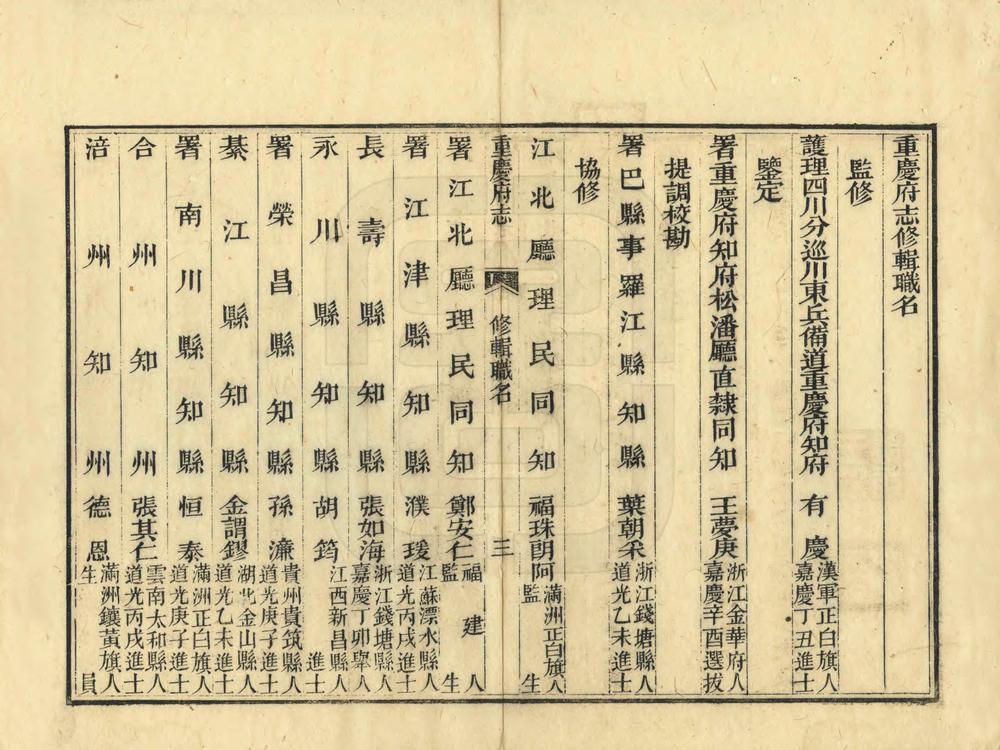 重慶府志修輯職名
監修
護理四川分巡川東兵備道重慶府知府有慶漢軍正白旗人嘉慶丁丑進士
鑒定
署重慶府知府松潘廳直隸同知王夢庚浙江金華府人嘉慶辛酉選拔
提調校勘
署巴縣事羅江縣知縣葉朝采浙江錢塘縣人道光乙未進士
協修
江北廳理民同知福珠朗阿滿洲正白旗人監生
重慶府志 修輯職名 三
署江北廳理民同知鄭安仁福建人監生
署江津縣知縣濮瑗江蘇漂水縣人道光丙戌進士
長壽縣知縣張如海浙江錢塘縣人嘉慶丁卯舉人
永川縣知縣胡筠江西新昌縣人進士
署榮昌縣知縣孫濂貴州貴筑縣人道光庚子進士
綦江縣知縣金謂鏐湖北金山縣人道光乙未進士
署南川縣知縣恒泰滿洲正白旗人道光庚子進士
合州知州張其仁雲南太和縣人道光丙戌進士
涪州知州德恩滿洲鑲黃旗人生員